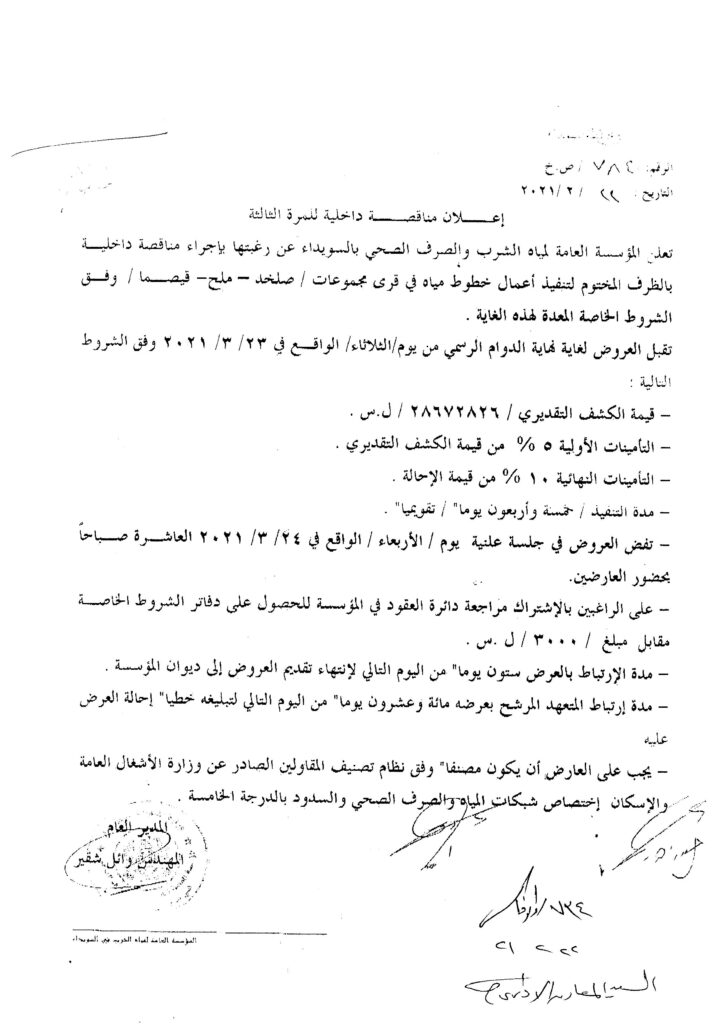 الرقم: ٧٨٤ / ص.خ
التاريخ : ٢٢ / ٢ /٢٠٢١
إعـــلان مناقصـــة داخلية للمرة الثالثة
تعلن المؤسسة العامة لمياه الشرب والصرف الصحي بالسويداء عن رغبتها بإجراء مناقصة داخليـــة
بالظرف المختوم لتنفيذ أعمال خطوط مياه في قرى مجموعات / صلخد – ملح– قيصمـا / وفـــق
الشروط الخاصة المعدة لهذه الغاية .
تقبل العروض لغاية نهاية الدوام الرسمي من يوم/الثلاثاء/ الواقـــع في ٢٣/ ٣/ ٢٠٢١ وفق الشروط
التالية :
– قيمة الكشف التقديري / ٢٨٦٧٢٨٢٦ / ل.س .
– التأمينات الأولية ٥ % من قيمة الكشف التقديري .
– التأمينات النهائية ١٠ % من قيمة الإحالة .
– مدة التنفيذ / خمسة وأربعون يوما" / تقويميا" .
– تفض العروض في جلسة علنية يوم / الأربعاء / الواقع في ٢٤/ ٣/ ٢٠٢١ العاشـــرة صـــباحاً
بحضور العارضين.
– على الراغبين بالإشتراك مراجعة دائرة العقود في المؤسسة للحصول على دفاتر الشروط الخاصـــة
مقابل مبلغ / ٣٠٠٠ / ل .س .
– مدة الإرتباط بالعرض ستون يوما" من اليوم التالي لإنتهاء تقديم العروض إلى ديوان المؤسسة .
– مدة إرتباط المتعهد المرشح بعرضه مائة وعشرون يوما" من اليوم التالي لتبليغه خطيا" إحالة العرض
عليه
– يجب على العارض أن يكون مصنفا" وفق نظام تصنيف المقاولين الصادر عن وزارة الأشغال العامة
والإسكان إختصاص شبكات المياه والصرف الصحي والسدود بالدرجة الخامسة .
المدير العام
المهندس وائل شقير
٧٣٤
٢٢ ٢ ٢١
المؤسسة العامة لمياه الشرب في السويداء